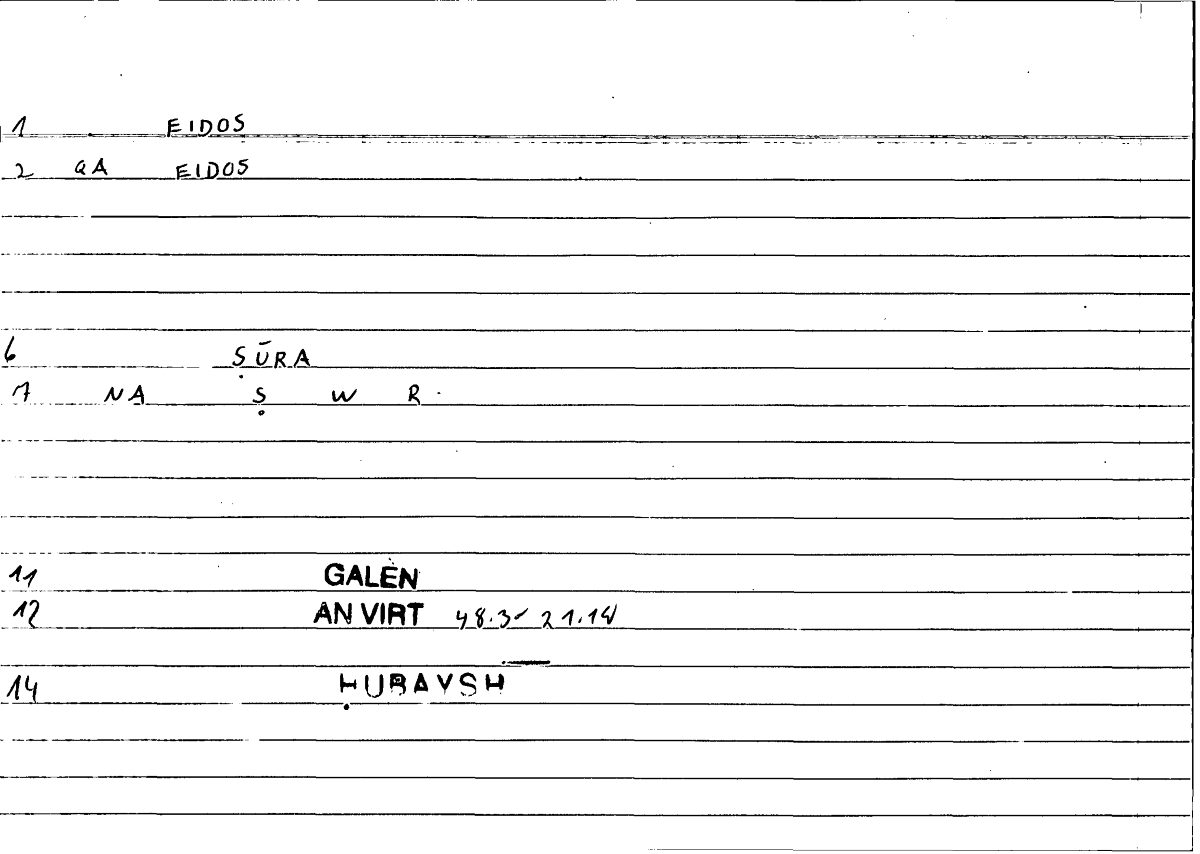 1 EIDOS
2 QA EIDOS
6 ṢŪRA
7 NA Ṣ W R
11 GALEN
12 AN VIRT 48.3 - 21.14
14 ḤUBAYSH